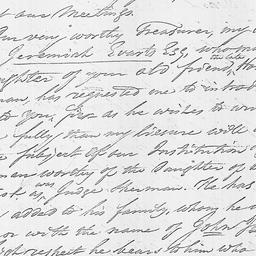 our Meetings.
our very worthy Treasurer, my
Jeremiah Evarts Esq, who
the late
daughter of your old friend,
man, has requested me to introd
to you, for as he wishes to
fully, than my leisure with
subject of our Institution
man worthy of the Daughter of
was
Judge Sherman. He has
added to his family, whom he
or with the name of John
respect he bears to him who